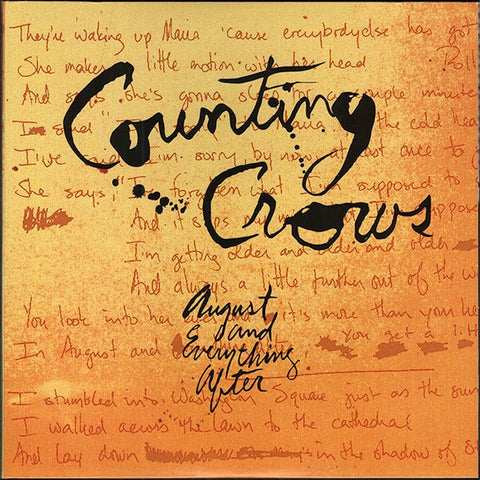 They're waking up Maria 'cause everybodyelse has got
She makes little motion with her head Roll
And says she's gonna sleep for a couple minutes
Counting
I said the cold hea
I've said I'm sorry, by now, at least once to
She says, "I'm forget what I'm supposed to
Crows
And it slips my suppose
I'm getting older and older and older
And always a little further out of the w
You look into her it's more than your he
August
and
In August and you get a litt
Everything
After
I stumbled into Washington Square just as the sun
I walked across the lawn to the cathedral
And lay down in the shadow of S